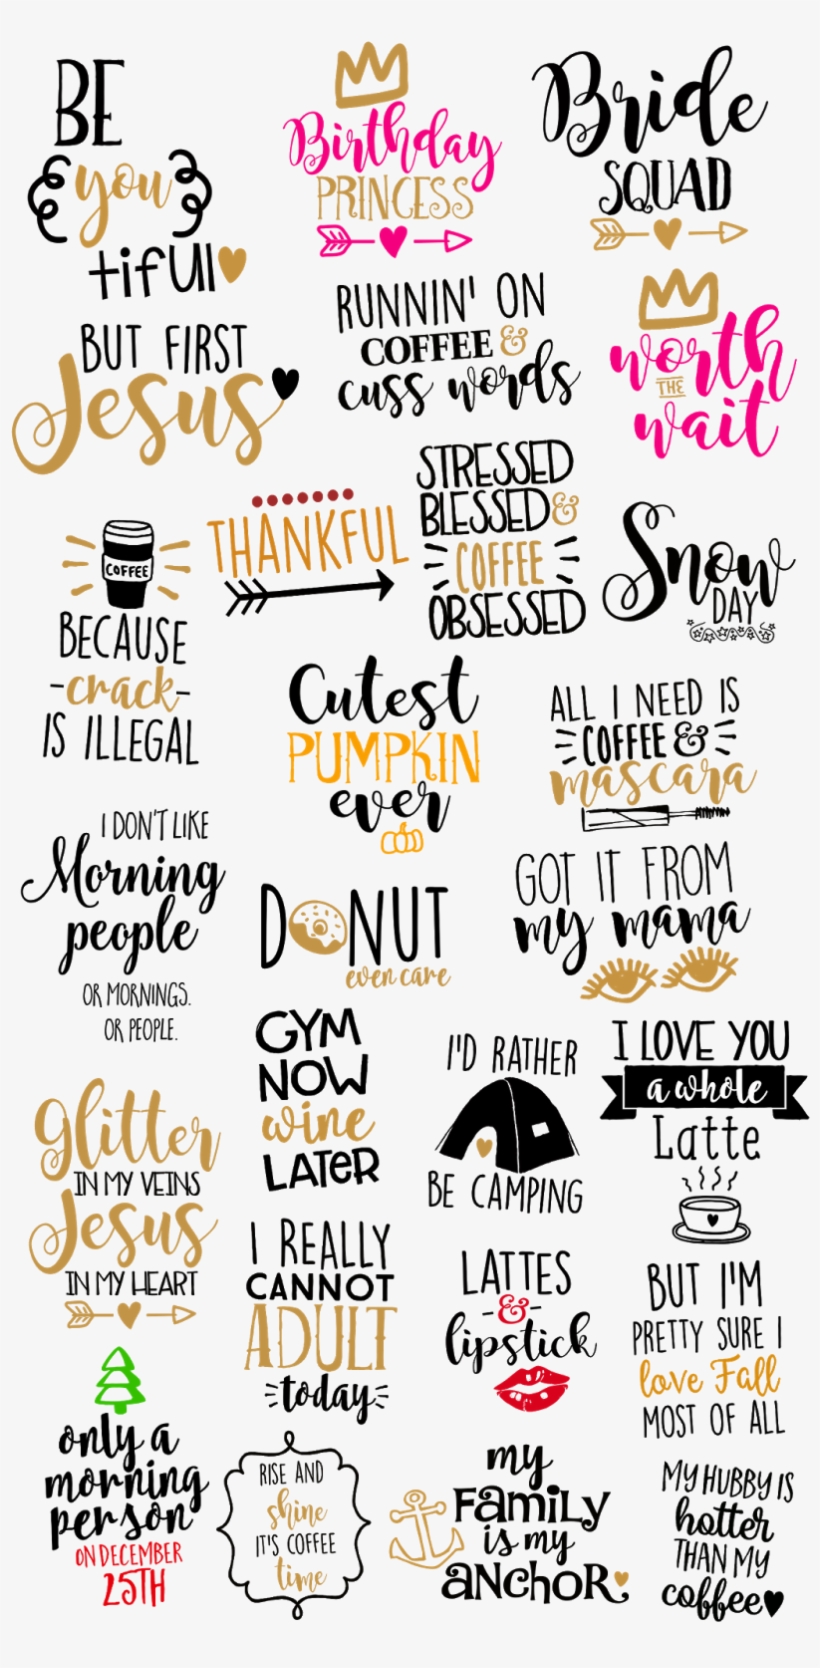 BE
you
tiful
Birthday
PRINCESS
Bride
SQUAD
BUT FIRST
Jesus
RUNNIN' ON
COFFEE &
cuss words
worth
THE
wait
COFFEE
BECAUSE
-crack-
IS ILLEGAL
THANKFUL
STRESSED
BLESSED &
COFFEE
OBSESSED
Snow
DAY
Cutest
PUMPKIN
ever
ALL I NEED IS
COFFEE &
mascara
I DON'T LIKE
Morning
people
OR MORNINGS.
OR PEOPLE.
DONUT
even care
GOT IT FROM
my mama
GYM
NOW
wine
LATER
I'D RATHER
BE CAMPING
I LOVE YOU
a whole
Latte
Glitter
IN MY VEINS
Jesus
IN MY HEART
I REALLY
CANNOT
ADULT
today
LATTES
-&-
lipstick
BUT I'M
PRETTY SURE I
love Fall
MOST OF ALL
only a
morning
person
ON DECEMBER
25TH
RISE AND
shine
IT'S COFFEE
time
my
FAMILY
is my
ANCHOR
MY HUBBY IS
hotter
THAN MY
coffee